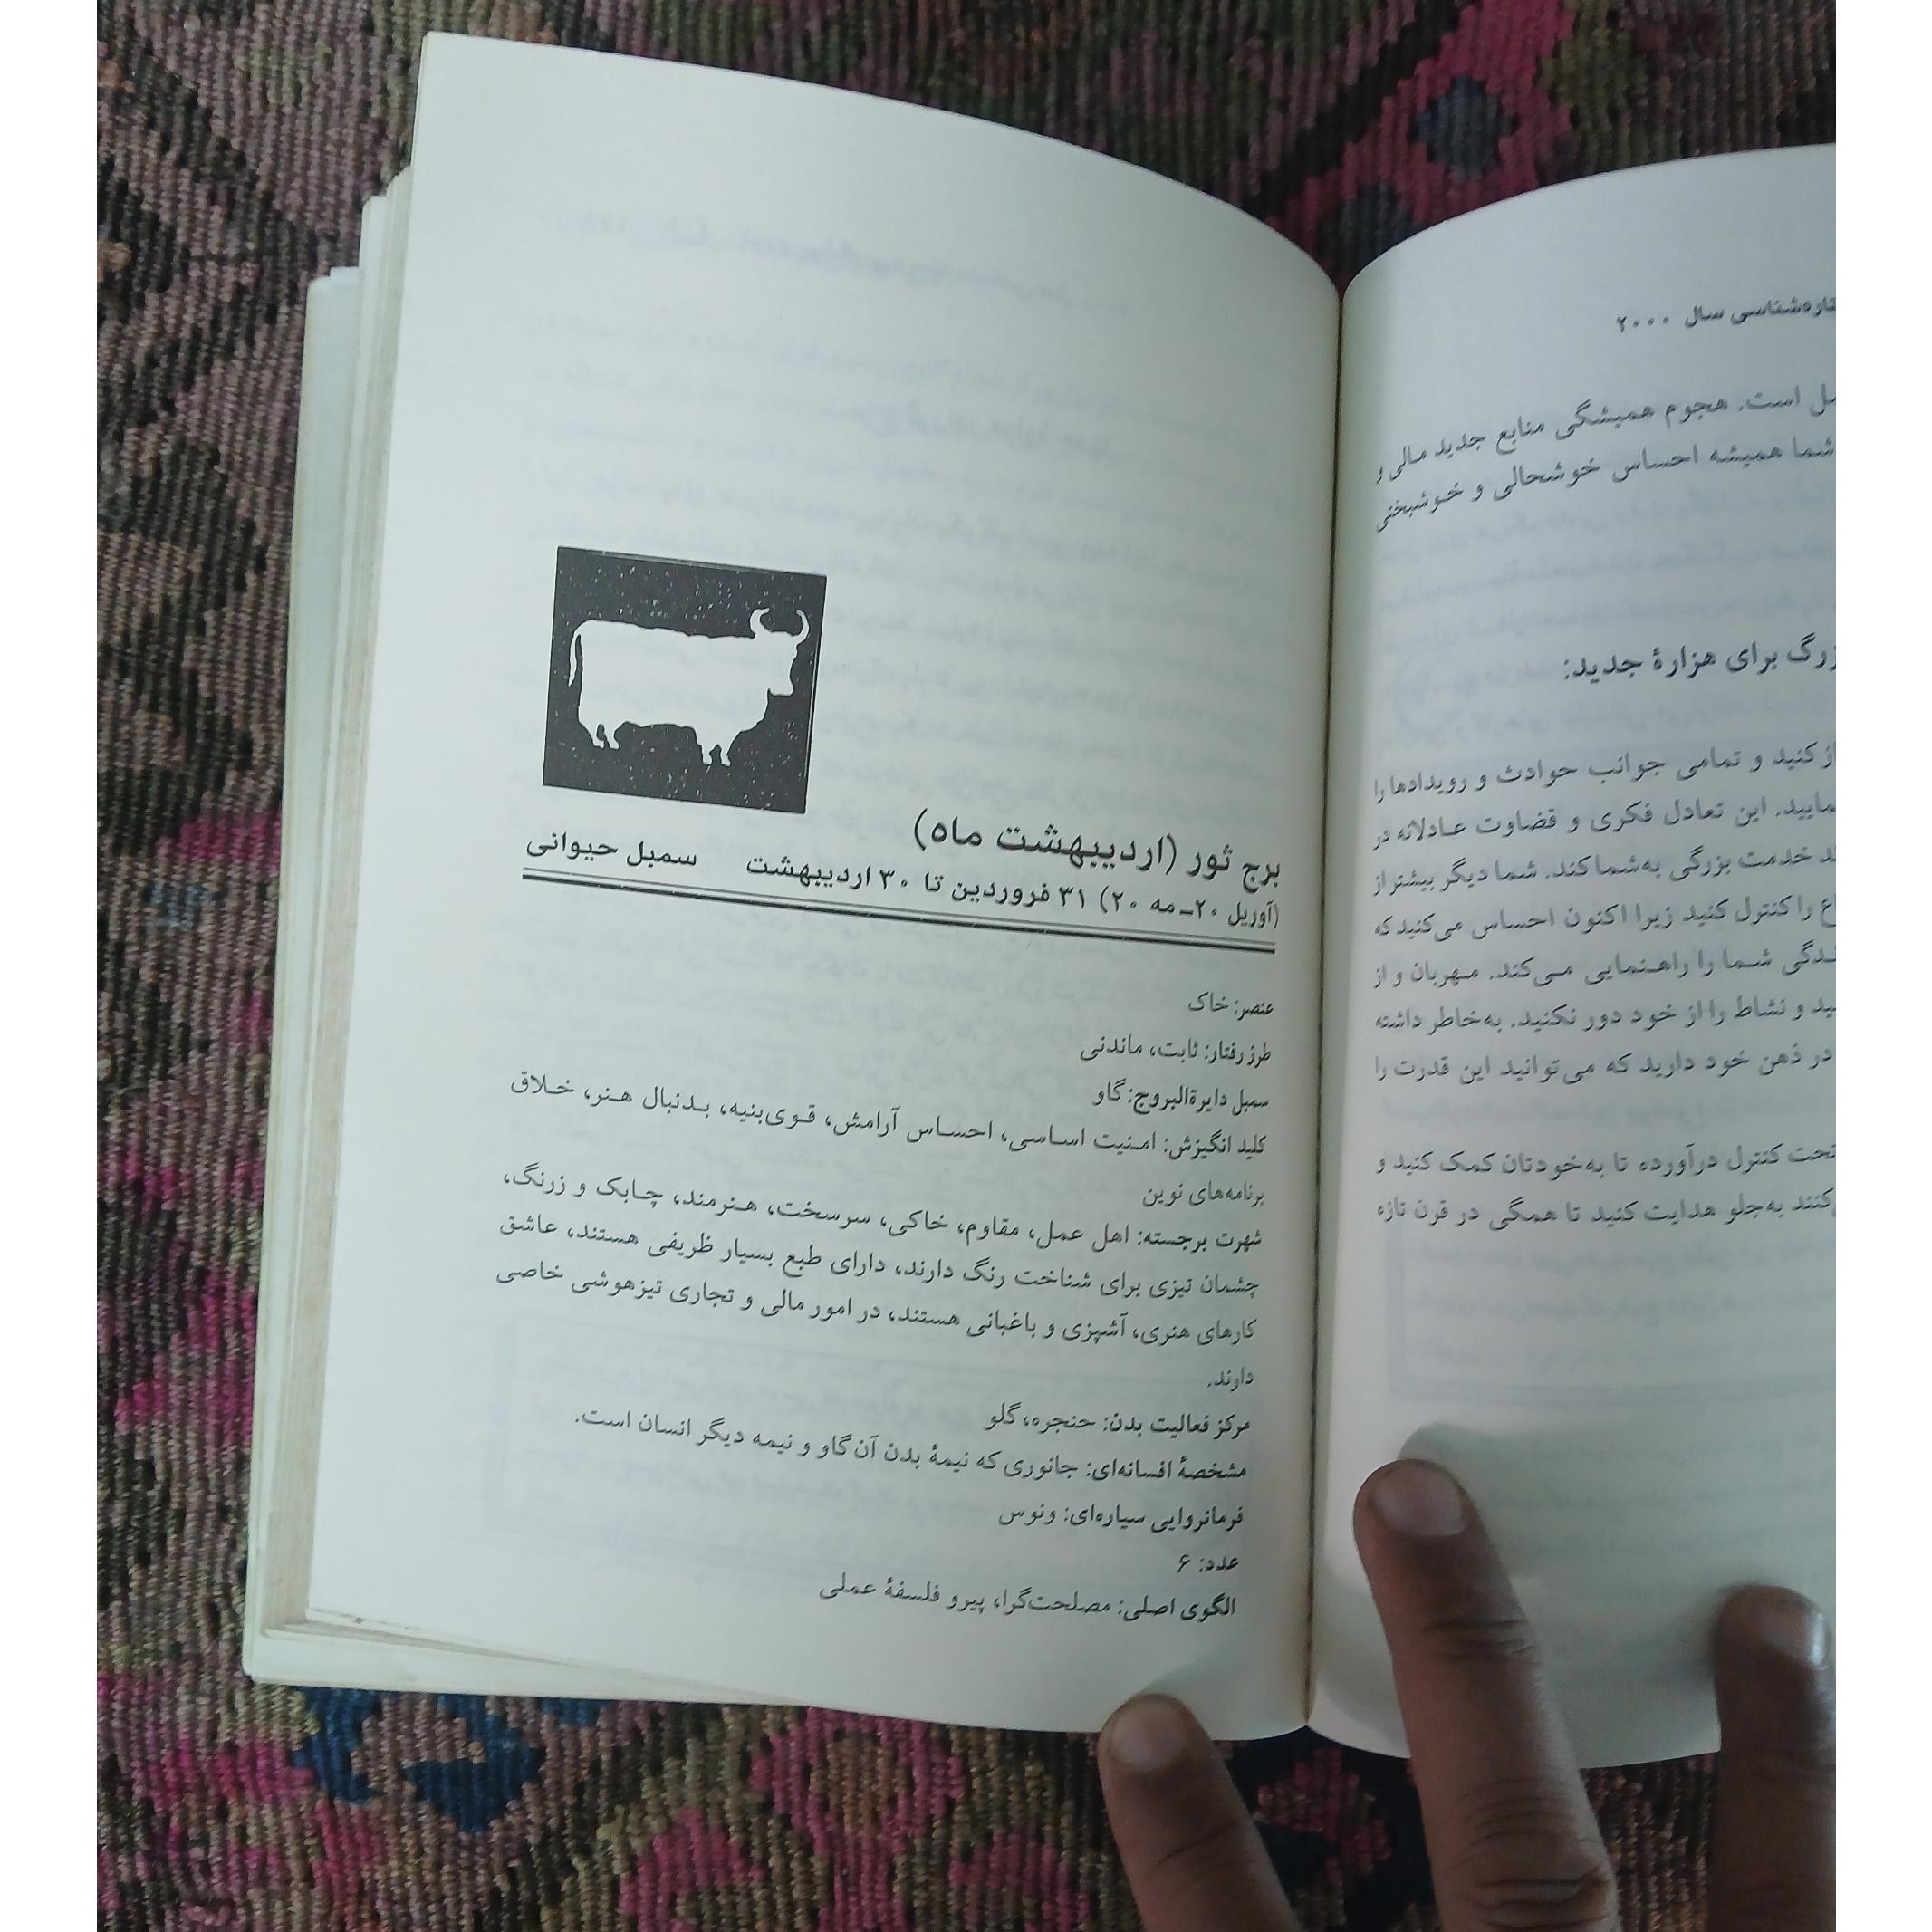 سال ۲۰۰۰
است. هجوم همیشگی منابع جدید مالی و
شما همیشه احساس خوشحالی و خوشبختی
برای هزارهٔ جدید:
کنید و تمامی جوانب حوادث و رویدادها را
این تعادل فکری و قضاوت عادلانه در
خدمت بزرگی به‌شما کند. شما دیگر بیشتر از
را کنترل کنید زیرا اکنون احساس می‌کنید که
شما را راهنمایی می‌کند. مهربان و از
و نشاط را از خود دور نکنید. به‌خاطر داشته
در ذهن خود دارید که می‌توانید این قدرت را
تحت کنترل درآورده تا به‌خودتان کمک کنید و
به‌جلو هدایت کنید تا همگی در قرن تازه
برج ثور (اردیبهشت ماه)
(آوریل ۲۰-مه ۲۰) ۳۱ فروردین تا ۳۰ اردیبهشت سمبل حیوانی
عنصر: خاک
طرز رفتار: ثابت، ماندنی
سمبل دایرةالبروج: گاو
کلید انگیزش: امنیت اساسی، احساس آرامش، قوی‌بنیه، بدنبال هنر، خلاق
برنامه‌های نوین
شهرت برجسته: اهل عمل، مقاوم، خاکی، سرسخت، هنرمند، چابک و زرنگ،
چشمان تیزی برای شناخت رنگ دارند، دارای طبع بسیار ظریفی هستند، عاشق
کارهای هنری، آشپزی و باغبانی هستند، در امور مالی و تجاری تیزهوشی خاصی
دارند.
مرکز فعالیت بدن: حنجره، گلو
مشخصهٔ افسانه‌ای: جانوری که نیمهٔ بدن آن گاو و نیمه دیگر انسان است.
فرمانروایی سیاره‌ای: ونوس
عدد: ۶
الگوی اصلی: مصلحت‌گرا، پیرو فلسفهٔ عملی